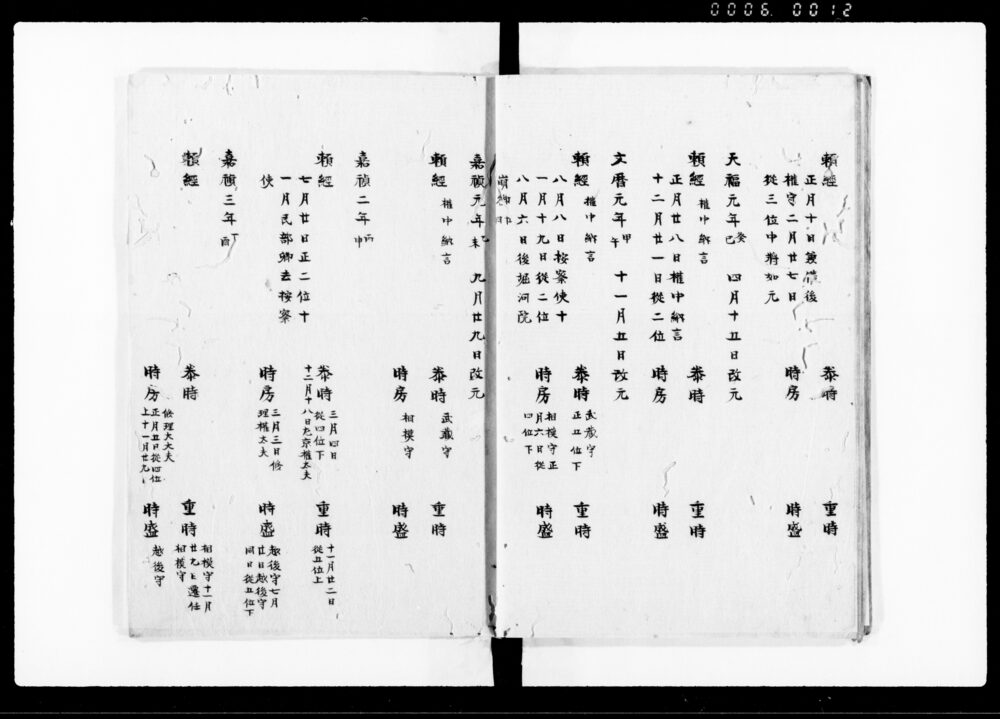 0006 0012
頼経
正月十日兼備後
権守二月廿七日
従三位中将如元
泰時
時房
重時
時盛
天福元年癸巳 四月十五日改元
頼経 権中納言
正月廿八日権中納言
十二月廿一日従二位
泰時
時房
重時
時盛
文暦元年甲午 十一月五日改元
頼経 権中納言
八月八日按察使十
一月十九日従二位
八月六日後堀河院
泰時 武蔵守
正五位下
時房 相模守正
月六日従
四位下
重時
時盛
嘉禎元年乙未 九月廿九日改元
頼経 権中納言
泰時 武蔵守
時房 相模守
重時
時盛
嘉禎二年丙申
頼経
七月廿日正二位十
一月民部卿去按察
使
泰時 三月四日
従四位下
十二月十八日左京権大夫
時房 三月三日修
理権大夫
重時 十一月廿二日
従五位上
時盛 越後守七月
廿日越後守
同日従五位下
嘉禎三年丁酉
頼経
泰時
時房 修理大夫
正月五日従四位
上十一月廿九日
重時 相模守十一月
廿九日遷任
相模守
時盛 越後守